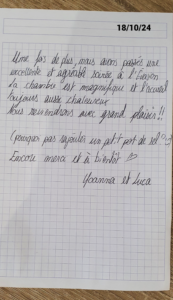 18/10/24
Une fois de plus, nous avons passés une
excellente et agréable soirée à l'
La chambre est magnifique et l'accueil
toujours aussi chaleureux
Nous reviendrons avec grand plaisir !!
(pourquoi pas rajouter un petit pot de sel ?)
Encore merci et à bientôt ♡
Yoanna et Luca